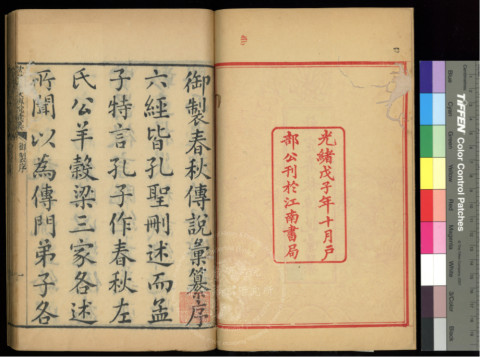 光緒戊子年十月戶
部公刊於江南書局
御製春秋傳說彙纂序
六經皆孔聖刪述而孟
子特言孔子作春秋左
氏公羊穀梁三家各述
所聞以為傳門弟子各
御製序
TIFFEN Color Control Patches
Blue
Cyan
Green
Yellow
Red
Magenta
White
3/Color
Black